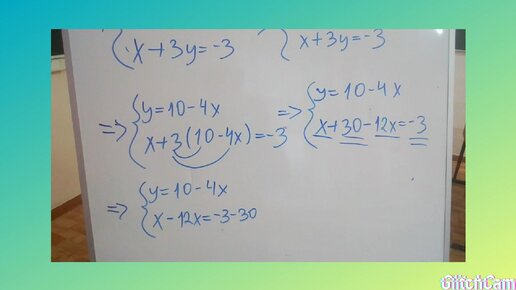 x+3y=-3
x+3y=-3
=> { y=10-4x
x+3(10-4x)=-3
=> { y=10-4x
x+30-12x=-3
=> { y=10-4x
x-12x=-3-30
GlitchCam